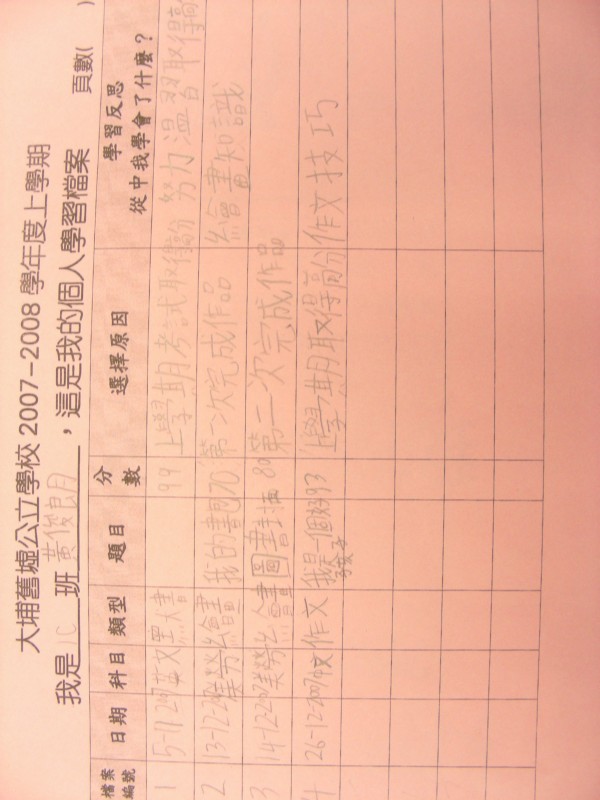 大埔舊墟公立學校 2007-2008 學年度上學期
我是 1C 班 黃俊朗，這是我的個人學習檔案 頁數( )
檔案編號 日期 科目 類型 題目 分數 選擇原因 學習反思 從中我學會了什麼？
1 5-11-2007 英文 默書 99 上學期考試取得高分 努力溫習取得高
2 13-12-2007 美勞 繪畫 我的 70 第一次完成作品 繪畫知識
3 14-12-2007 美勞 繪畫 圖畫 80 第二次完成作品
4 26-12-2007 中文 作文 我是一個好孩子 93 上學期取得高分 作文技巧